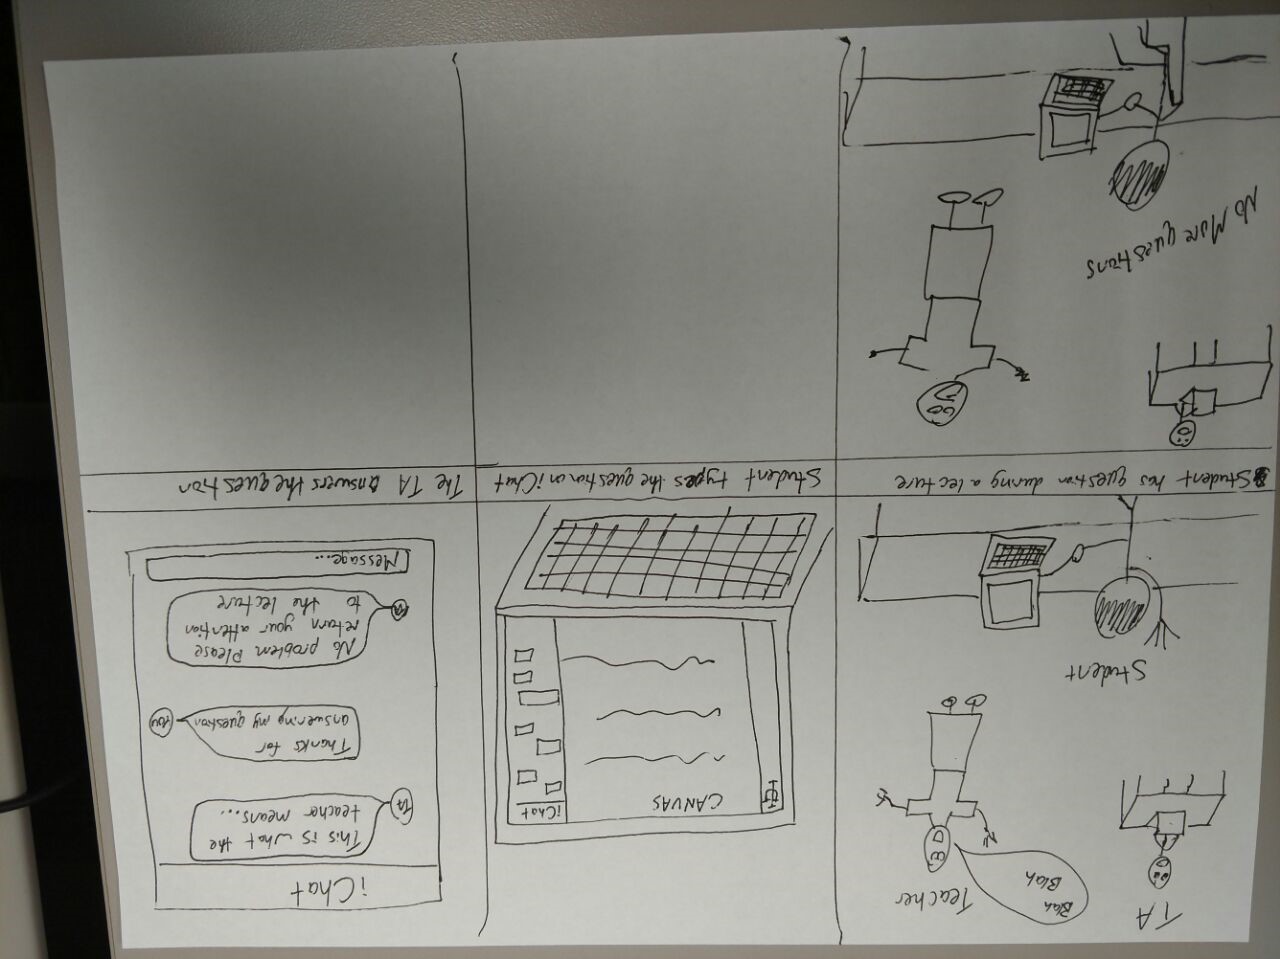 TA
Blah
Blah
Teacher
Student
Student has question during a lecture
CANVAS
iChat
Student types the question on iChat
iChat
This is what the
teacher means...
TA
Thanks for
answering my question
YOU
No problem Please
return your attention
to the lecture
TA
Message...
The TA answers the question
No More questions